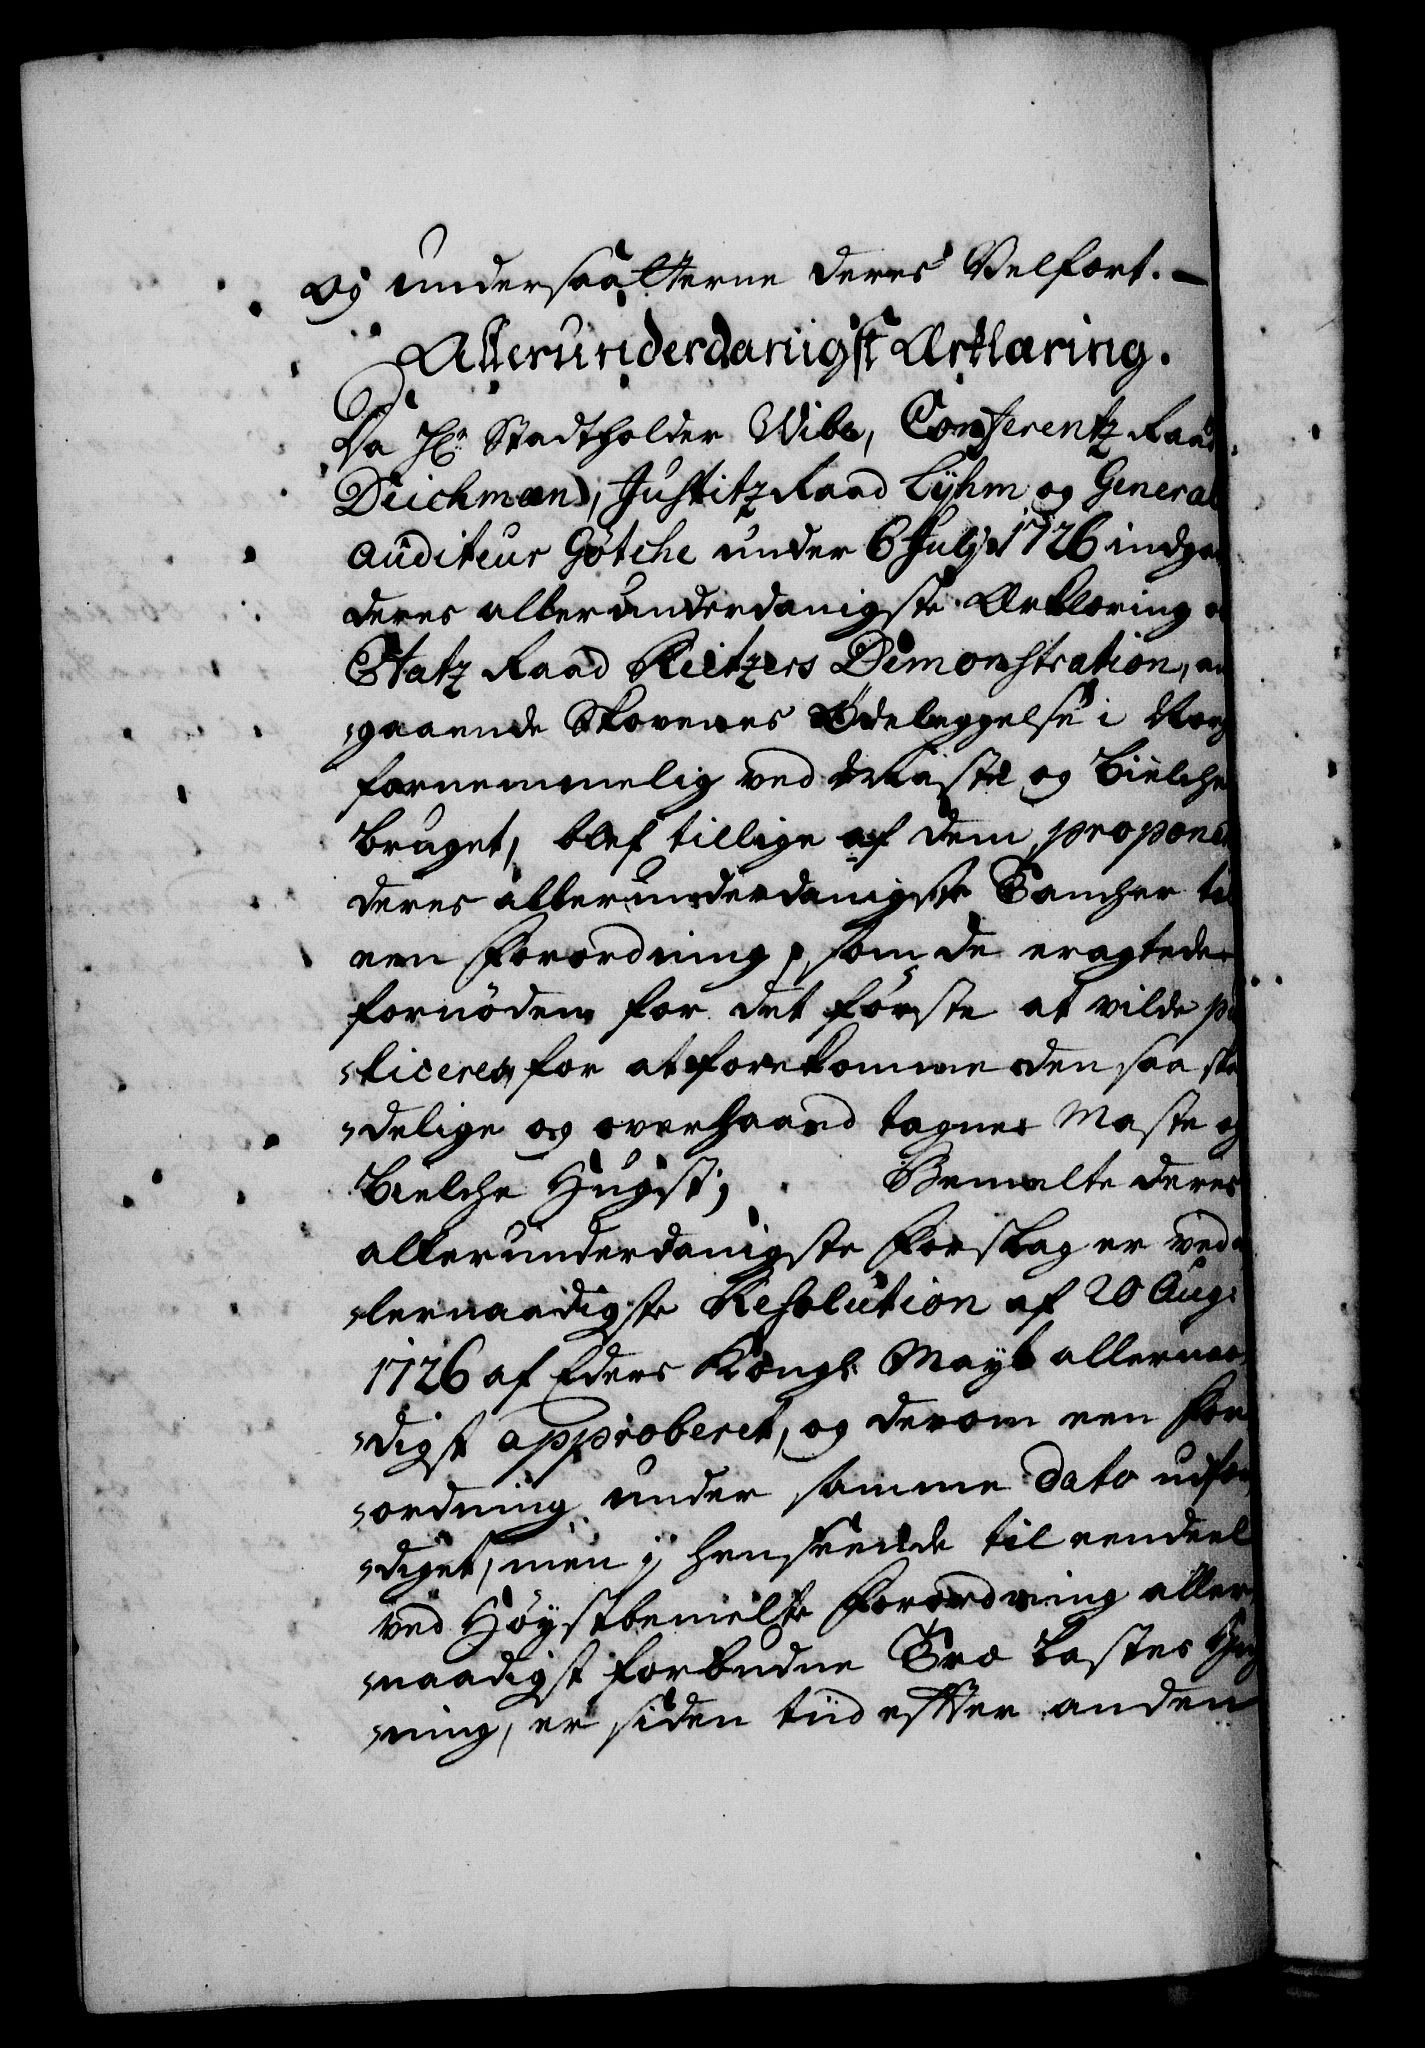 og undersaatterne deres Velfort. –
Allerunderdanigst Ærklæring.
Da Hr Stadtholder Wibe, Conferentz Raad
Deichman, Justitz Raad Lyhm og General
auditeur Gøtche under 6 July 1726 indga
deres allerunderdanigste Ærklæring o
Etatz Raad Reitzers Demonstration, an
gaaende Skovenes Ødeleggelse i Norg
fornemmelig ved Maste og Bielche
bruget, blef tillige af dem proponer
deres allerunderdanigste Tancher til
een Forordning, som de eragtede
fornöden for det förste at vilde pu
bliceres for at forekomme den saa ska
delige og overhaand tagne Maste og
Bielche Hugst; Bemelte deres
allerunderdanigste Forslag er ved al
lernaadigste Resolution af 20 Aug:
1726 af Eders Kongl: Mayt allernaa
digst approberet, og derom een For
ordning under samme dato udfær
diget, men j henseende til eendeel
ved Höystbemelte Forordning aller
naadigst forbudne Træ Lastes Hug
ning, er siden tiid efter anden